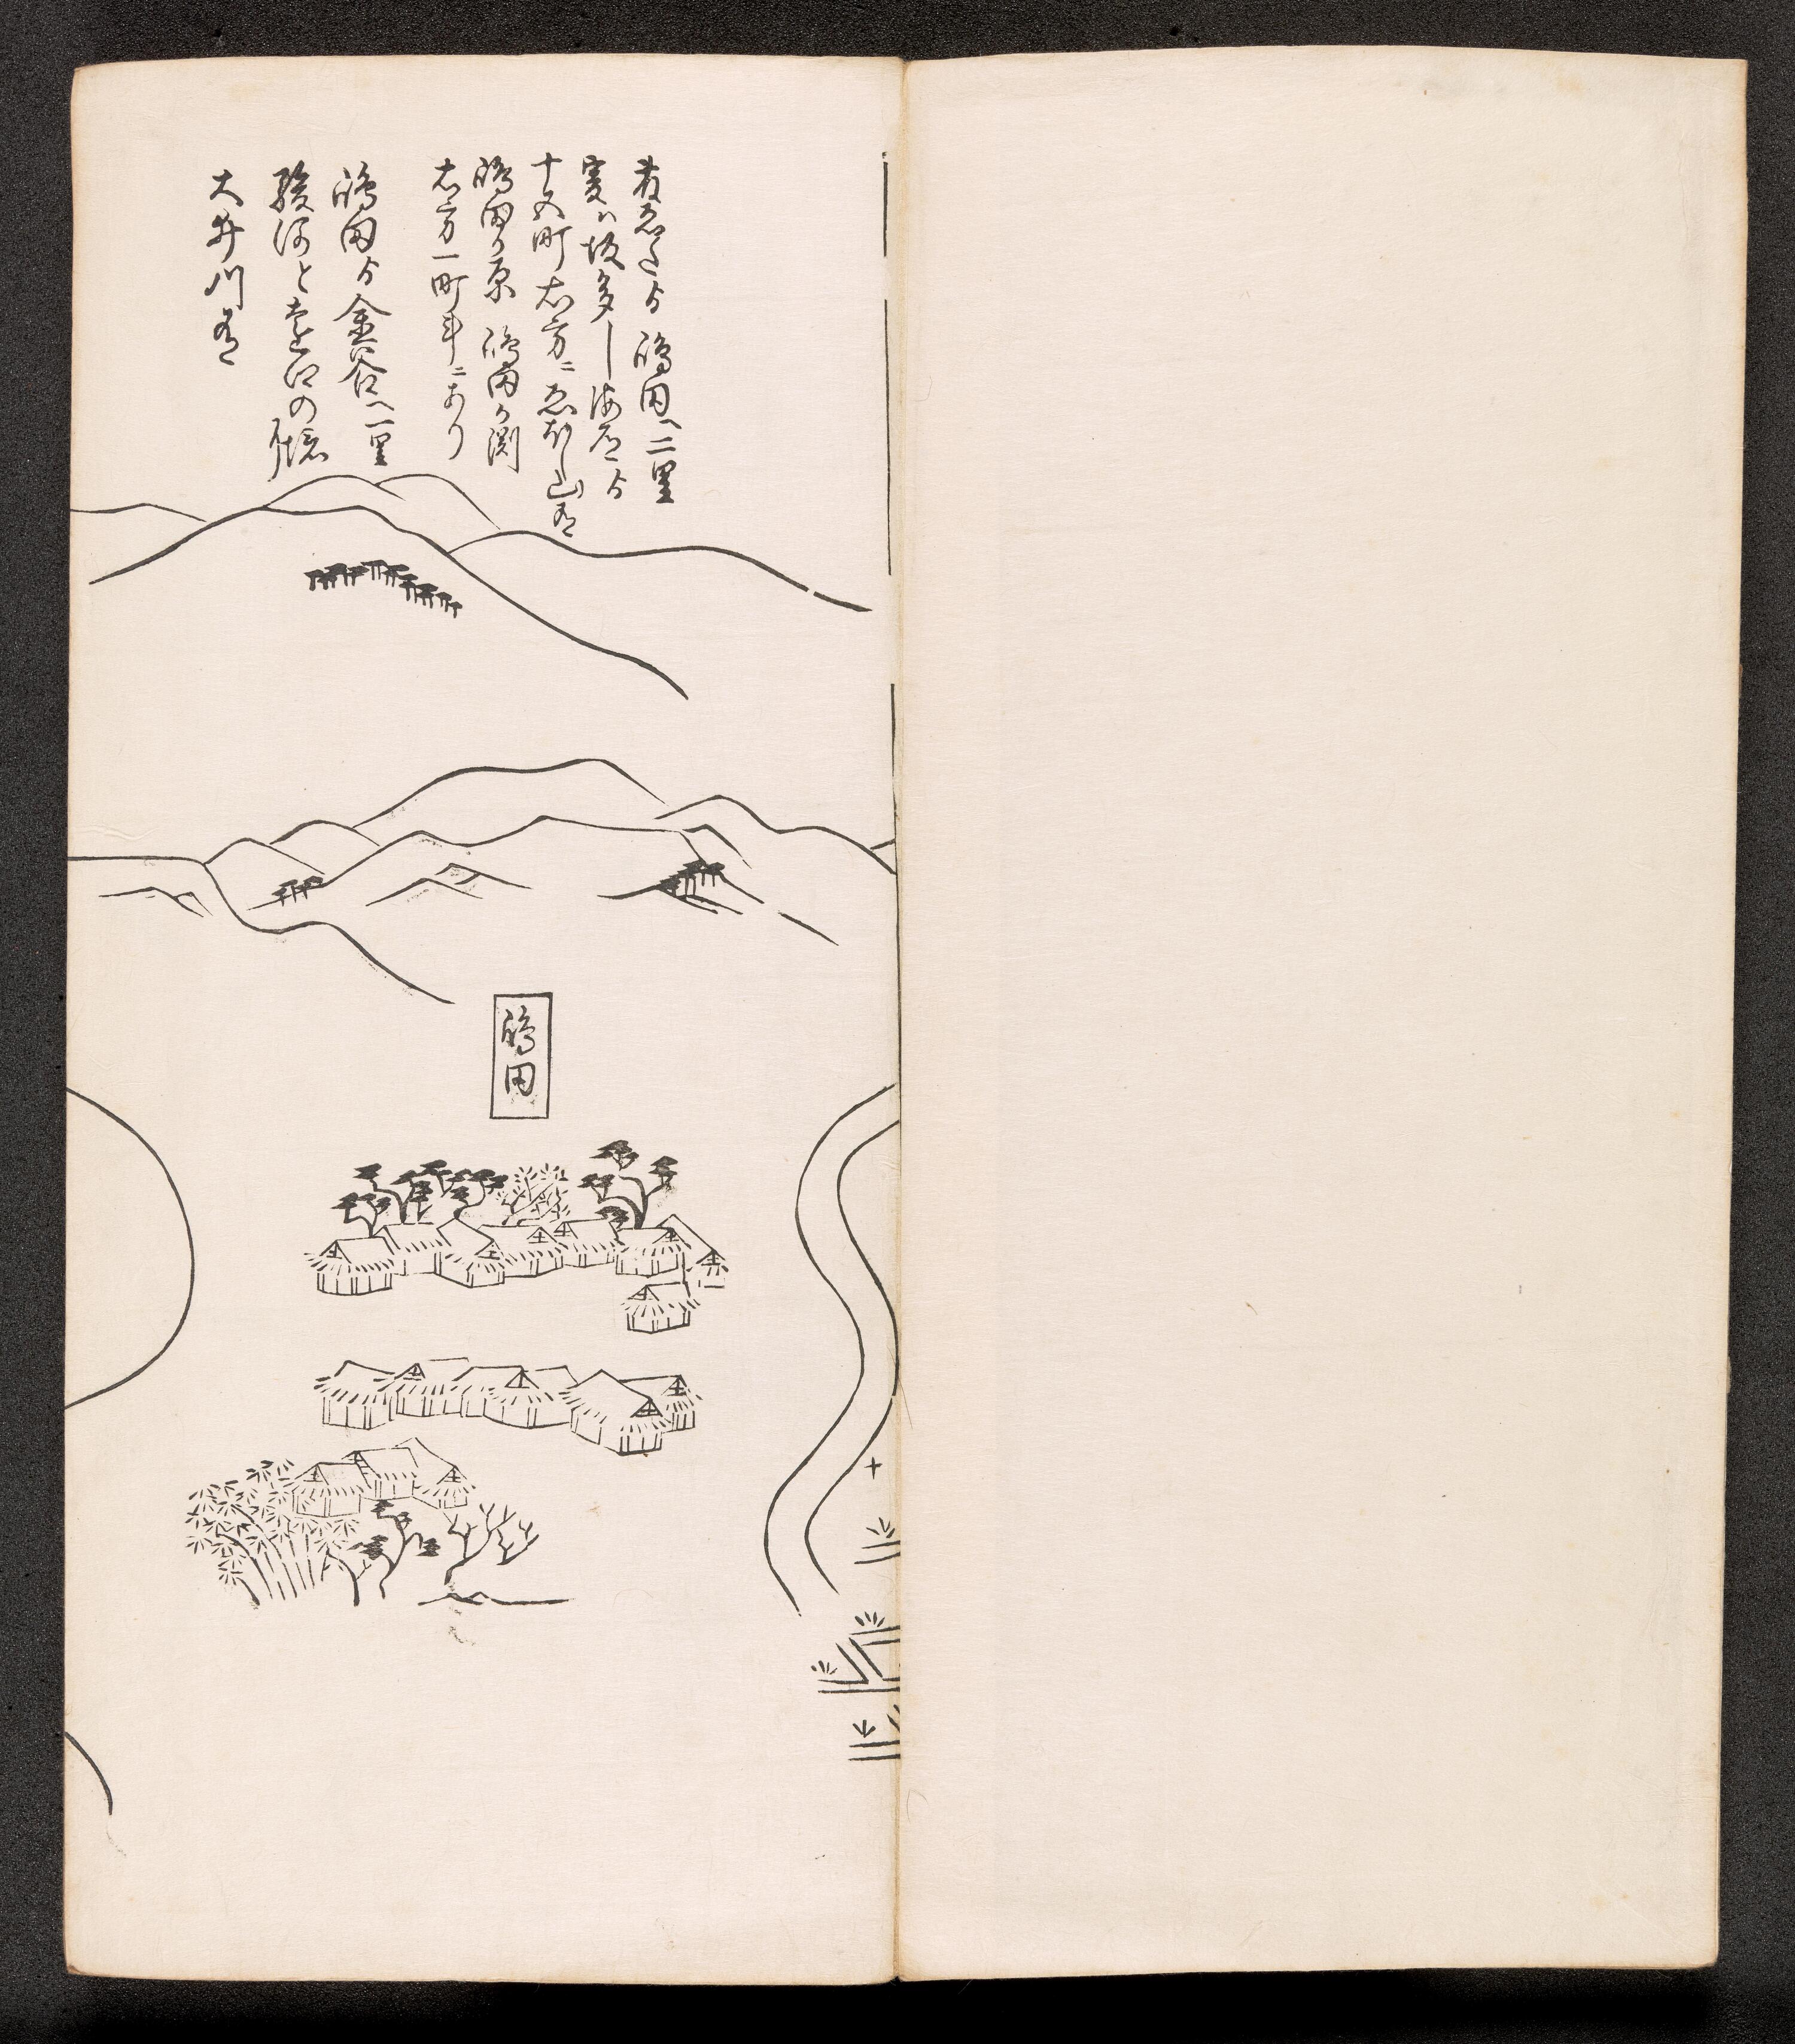 嶋田へ二里
爰ハ坂多し海道ゟ
十五町右方ニゑぼし山有
嶋田か原 嶋田か渕
右方一町半ニあり
嶋田ゟ金谷へ一里
駿河と遠江の境
大井川有
嶋田